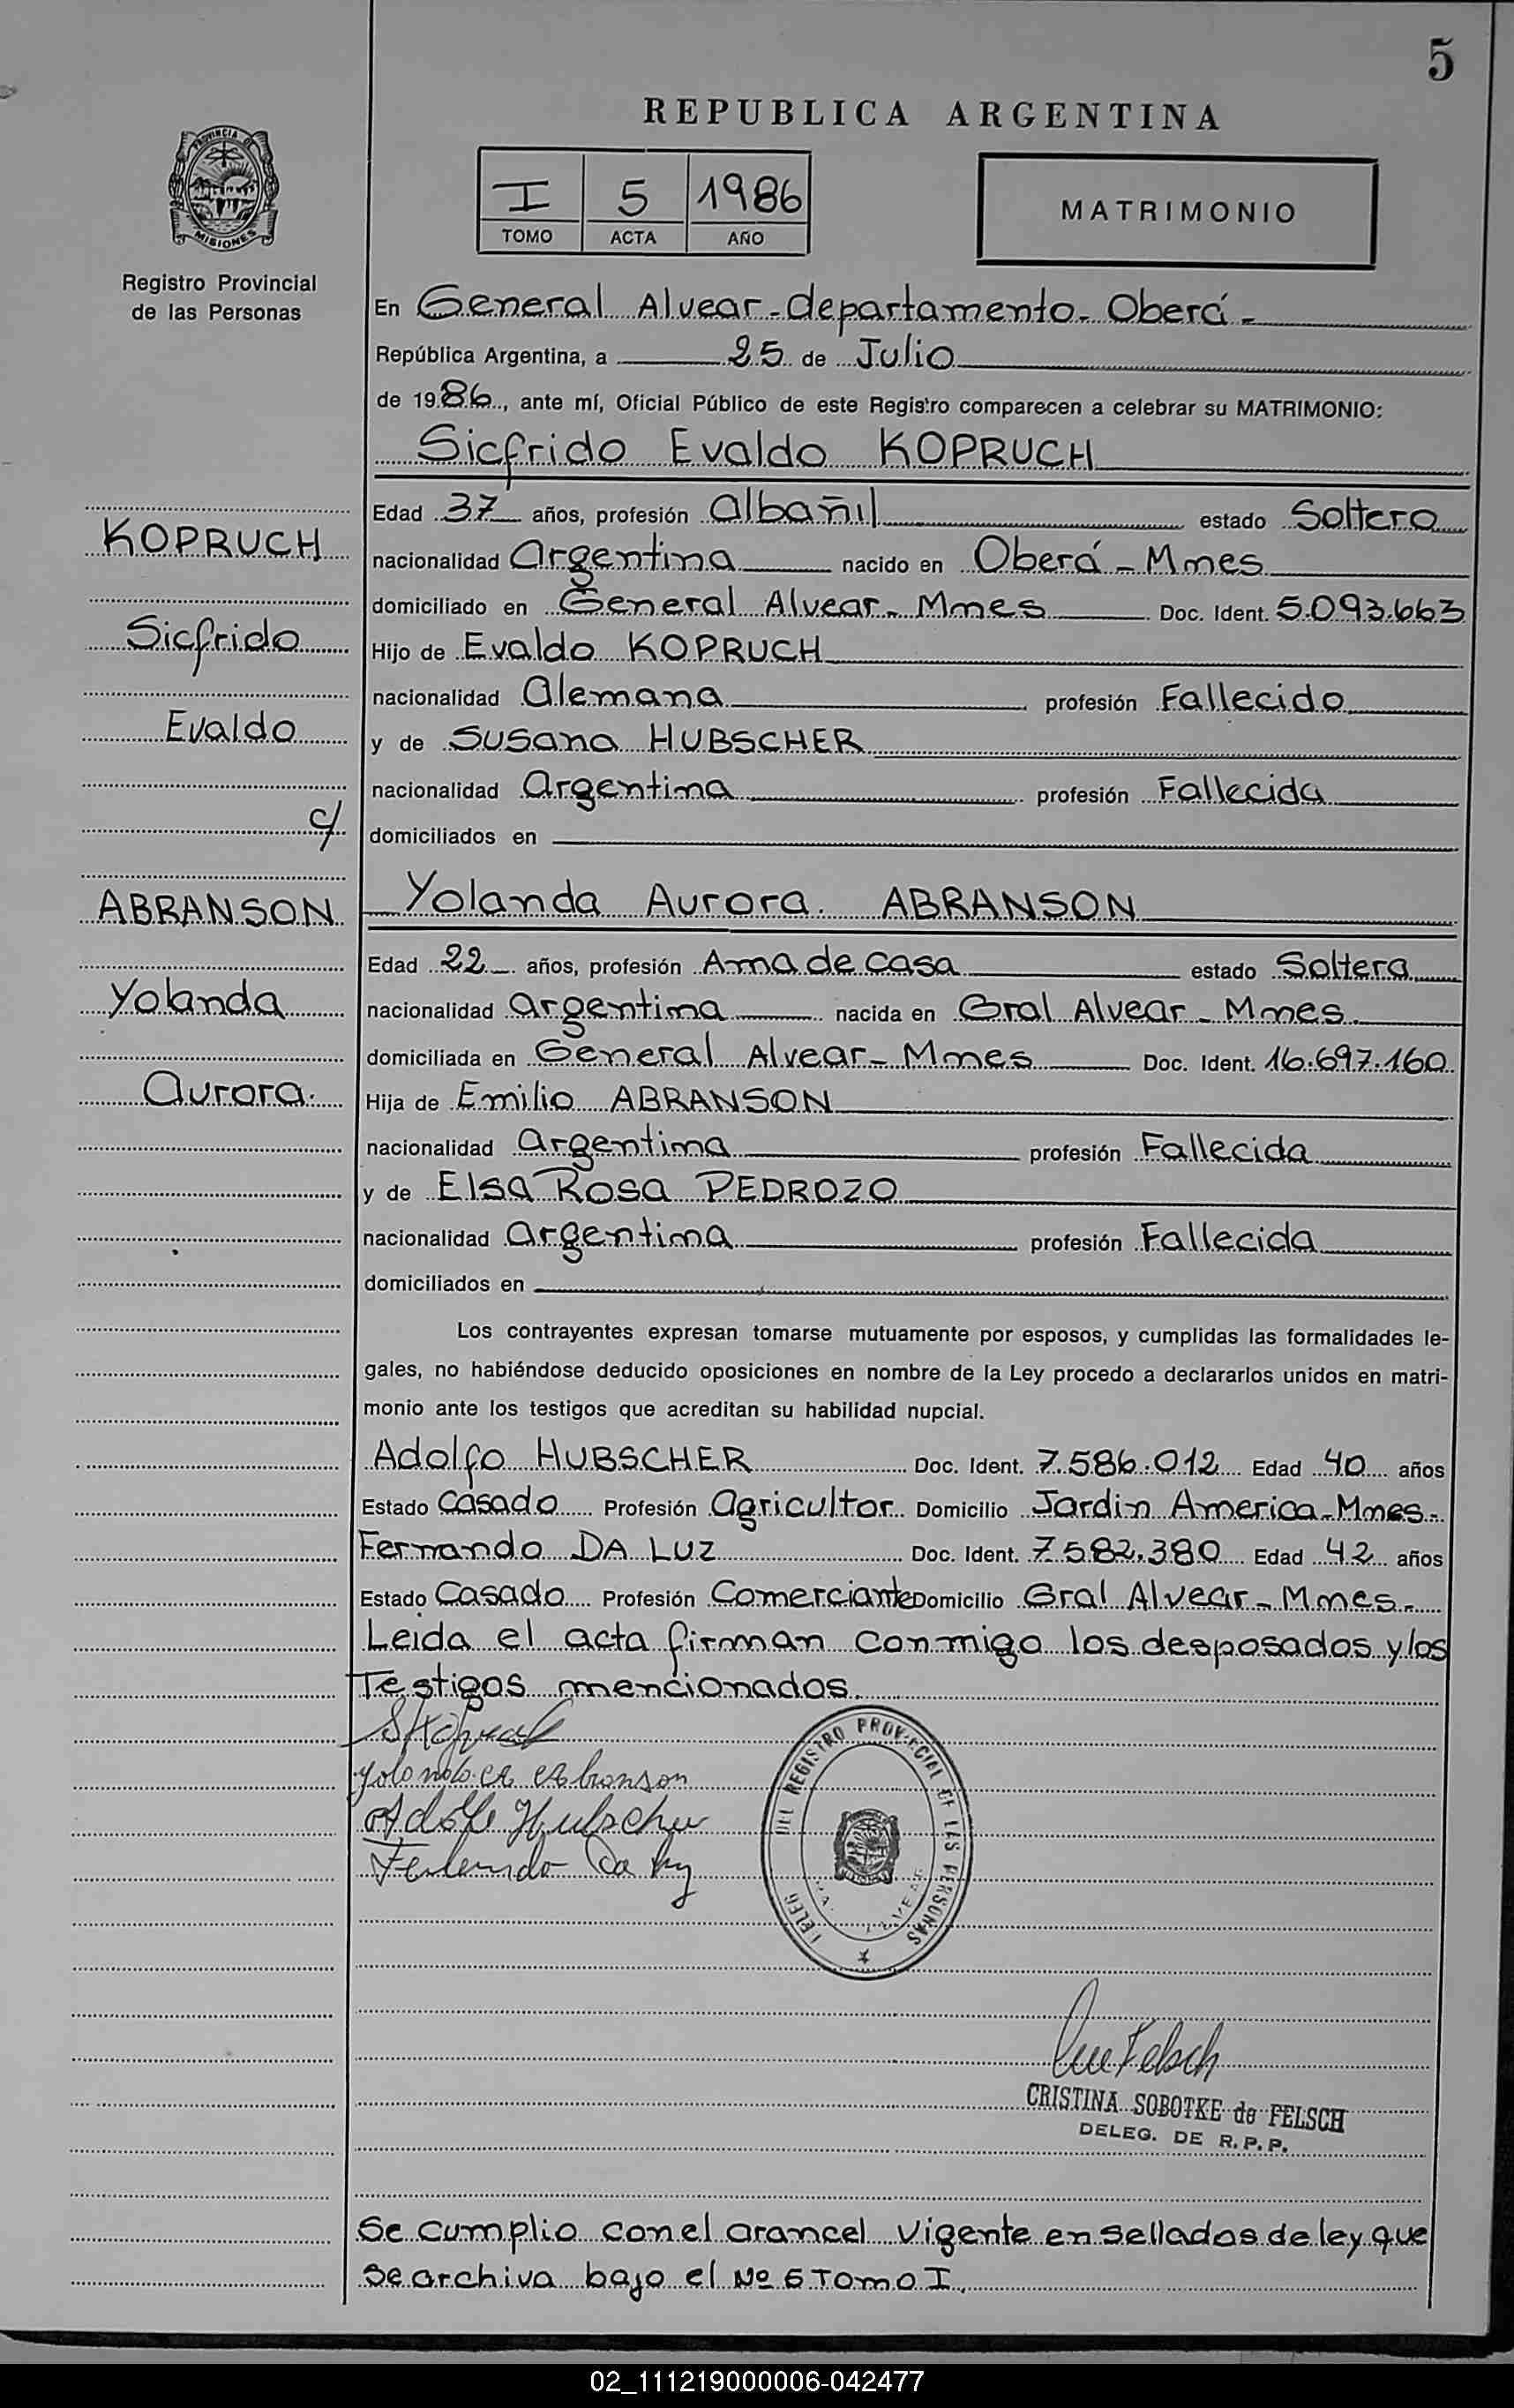 5
REPUBLICA ARGENTINA
PROVINCIA DE
MISIONES
Registro Provincial
de las Personas
I 5 1986
TOMO ACTA AÑO
MATRIMONIO
En General Alvear - departamento - Oberá -
República Argentina, a 25 de Julio
de 1986, ante mí, Oficial Público de este Registro comparecen a celebrar su MATRIMONIO:
Sicfrido Evaldo KOPRUCH
Edad 37 años, profesión albañil estado Soltero
KOPRUCH
nacionalidad argentina nacido en Oberá - Mnes
domiciliado en General Alvear - Mnes Doc. Ident. 5.093.663
Sicfrido
Hijo de Evaldo KOPRUCH
nacionalidad alemana profesión Fallecido
Evaldo
y de Susana HUBSCHER
nacionalidad argentina profesión Fallecida
c/
domiciliados en
ABRANSON
Yolanda Aurora. ABRANSON
Edad 22 años, profesión Ama de casa estado Soltera
Yolanda
nacionalidad argentina nacida en Gral Alvear - Mnes.
domiciliada en General Alvear - Mnes Doc. Ident. 16.697.160
aurora.
Hija de Emilio ABRANSON
nacionalidad argentina profesión Fallecida
y de Elsa Rosa PEDROZO
nacionalidad argentina profesión Fallecida
domiciliados en
Los contrayentes expresan tomarse mutuamente por esposos, y cumplidas las formalidades le-
gales, no habiéndose deducido oposiciones en nombre de la Ley procedo a declararlos unidos en matri-
monio ante los testigos que acreditan su habilidad nupcial.
Adolfo HUBSCHER Doc. Ident. 7.586.012 Edad 40 años
Estado Casado Profesión agricultor Domicilio Jardin America - Mnes -
Fernando DA LUZ Doc. Ident. 7.582.380 Edad 42 años
Estado Casado Profesión Comerciante Domicilio Gral Alvear - Mnes -
Leida el acta firman conmigo los desposados y los
Testigos mencionados.
yolanda a abranson
Adolfo Hubscher
DEL REGISTRO PROVINCIAL DE LAS PERSONAS
CRISTINA SOBOTKE de FELSCH
DELEG. DE R.P.P.
Se cumplio con el arancel vigente en sellados de ley que
se archiva bajo el Nº 5 Tomo I.
02_111219000006-042477